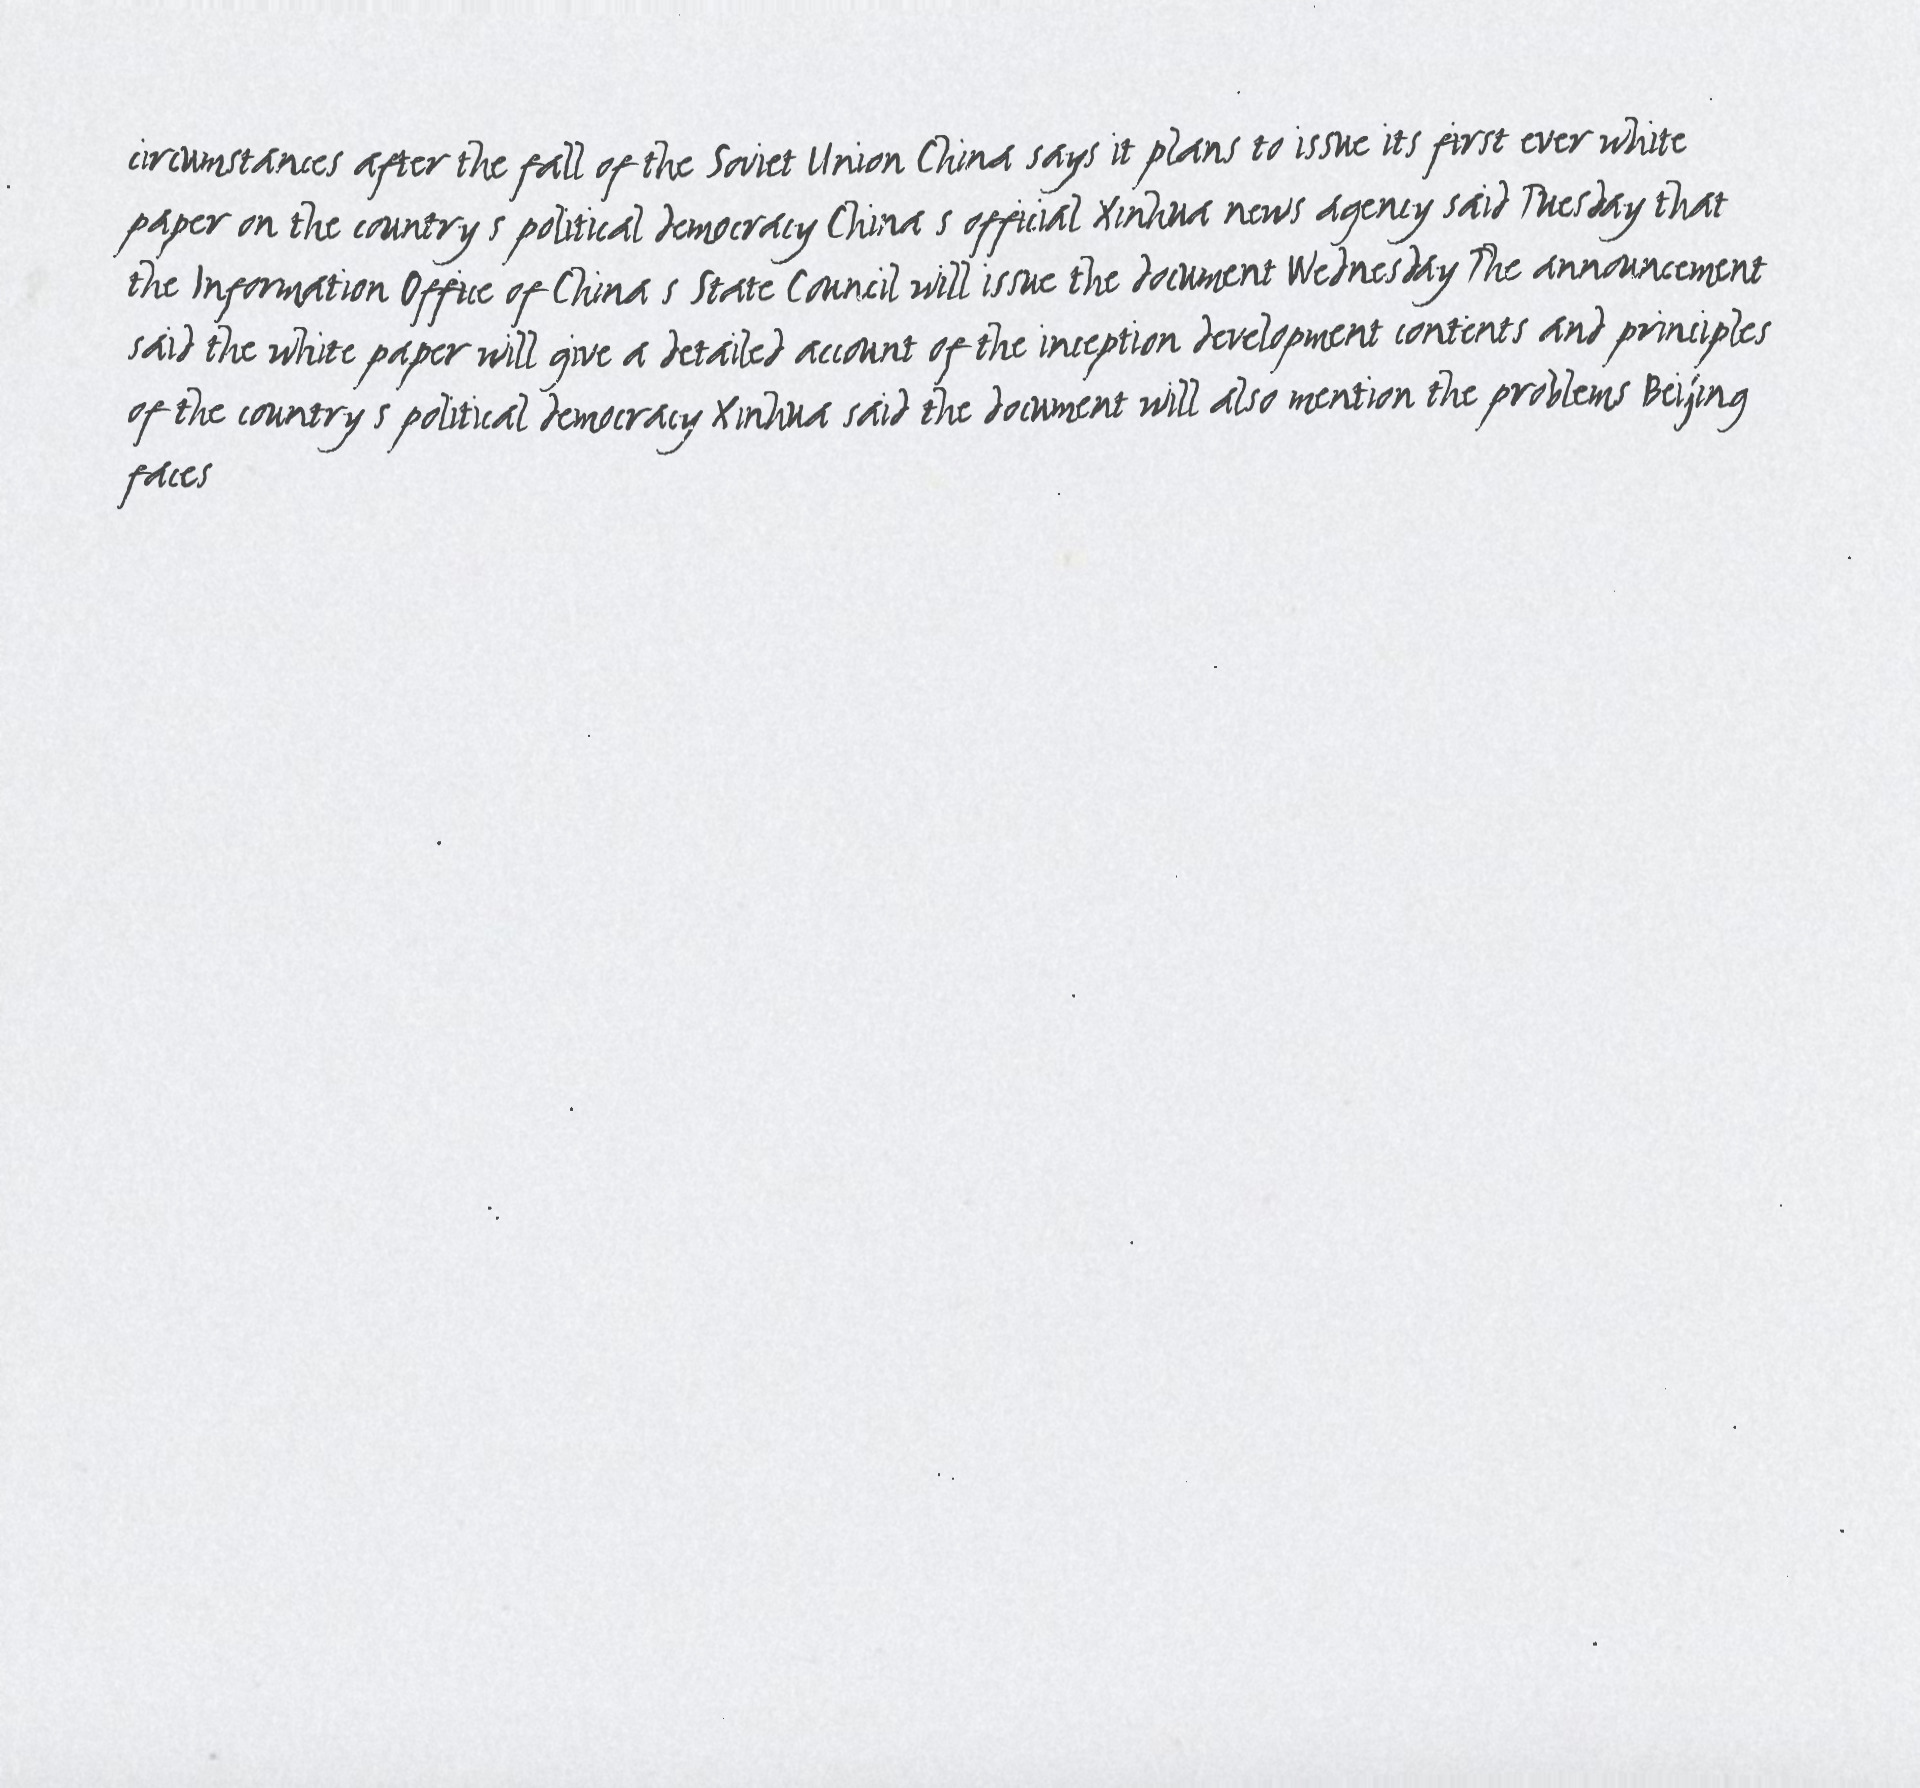 circumstances after the fall of the Soviet Union China says it plans to issue its first ever white
paper on the country s political democracy China s official Xinhua news agency said Tuesday that
the Information Office of China s State Council will issue the document Wednesday The announcement
said the white paper will give a detailed account of the inception development contents and principles
of the country s political democracy Xinhua said the document will also mention the problems Beijing
faces